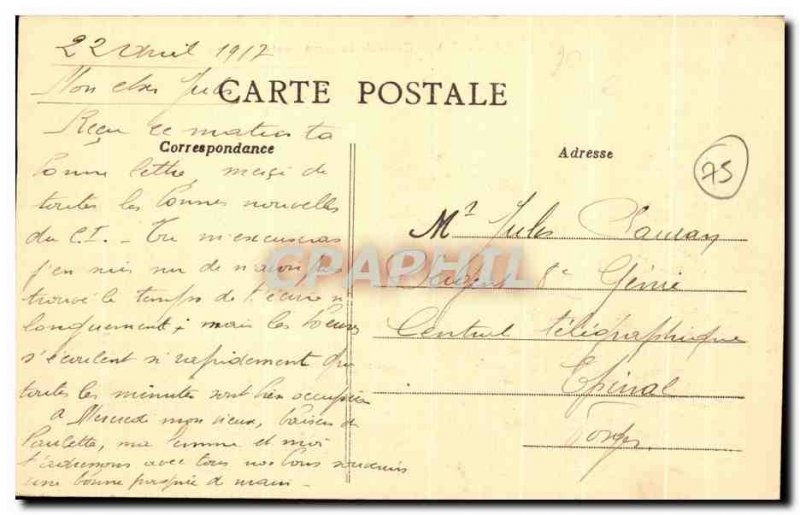 22 Avril 1917
Mon cher Jules
CARTE POSTALE
Reçu ce matin ta
Correspondance
bonne lettre, merci de
toutes les bonnes nouvelles
du C.I. - Tu m'excuseras
j'en suis sur de n'avoir pas
trouvé le temps de t'écrire
longuement; mais les heures
s'écoulent si rapidement que
toutes les minutes sont bien occupées
A Mercredi mon vieux, baisers de
Paulette, ma femme et moi
t'adressons avec tous nos bons souvenirs
une bonne poignée de main -
Adresse
75
Mr Jules
8e Génie
Central télégraphique
Epinal
Vosges
CPAPHIL